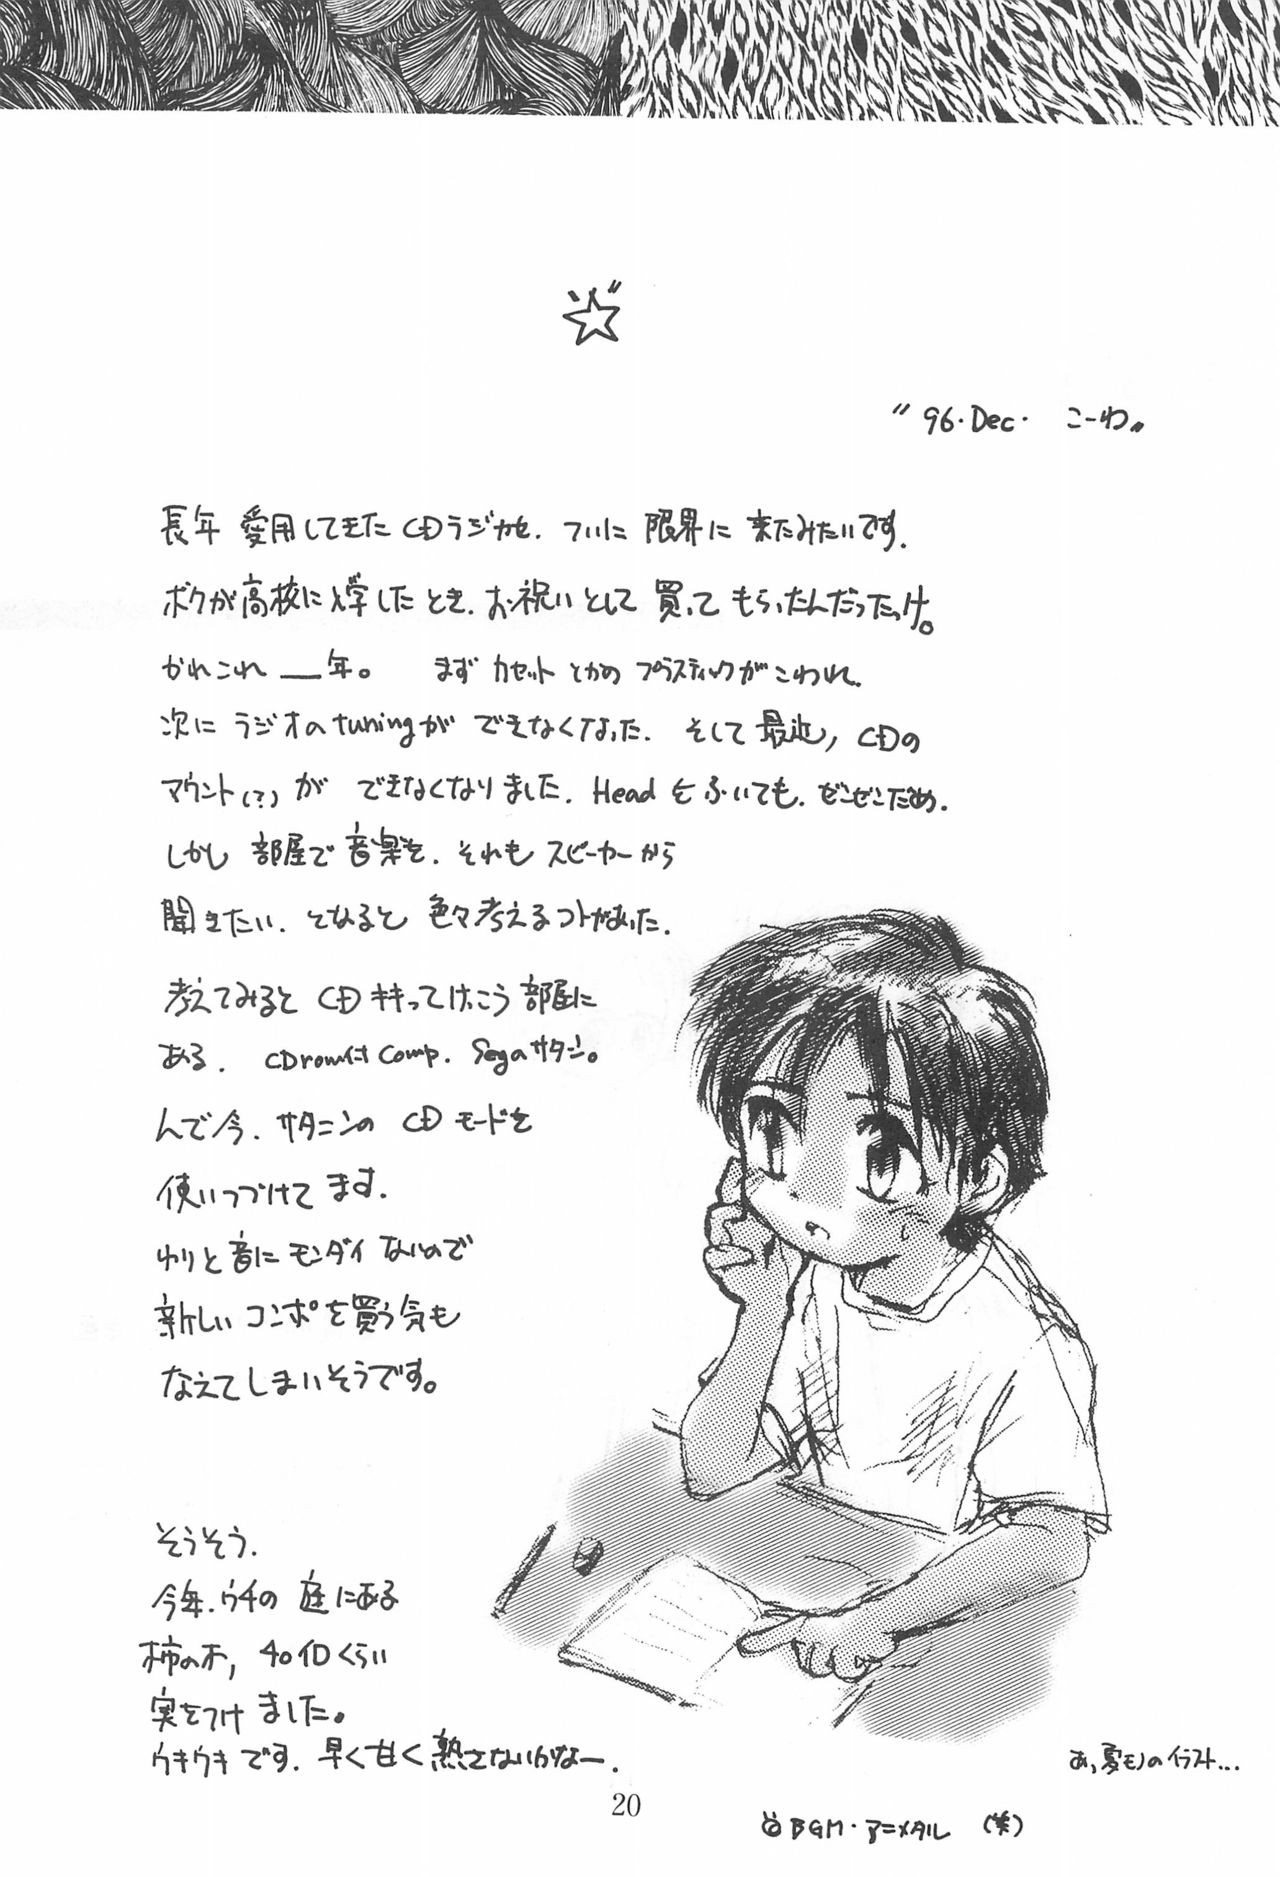 "96.Dec. こーわ"
長年 愛用してきた CDラジカセ. ついに 限界に 来たみたいです.
ボクが高校に入学したとき. お祝いとして 買って もらったんだったっけ。
かれこれ __年。 まず カセット とかの プラスティックがこわれ.
次に ラジオのtuningが できなくなった. そして 最近, CDの
マウント(?)が できなくなりました. Head をふいても. ぜんぜんだめ.
しかし 部屋で 音楽を. それも スピーカーから
聞きたい. となると 色々考えるコトがあった.
考えてみると CDキキってけっこう 部屋に
ある. CDrom付 Comp. Segaサターン。
んで今. サターンの CD モードを
使いつづけて ます.
わりと 音に モンダイ ないので
新しい コンポを 買う気も
なえてしまいそうです。
そうそう.
今年. ウチの 庭にある
柿の木, 40個くらい
実をつけ ました。
ウキウキです. 早く甘く 熟さないかなー.
あ, 夏モノのイラスト...
20
BGM・アニメタル (笑)